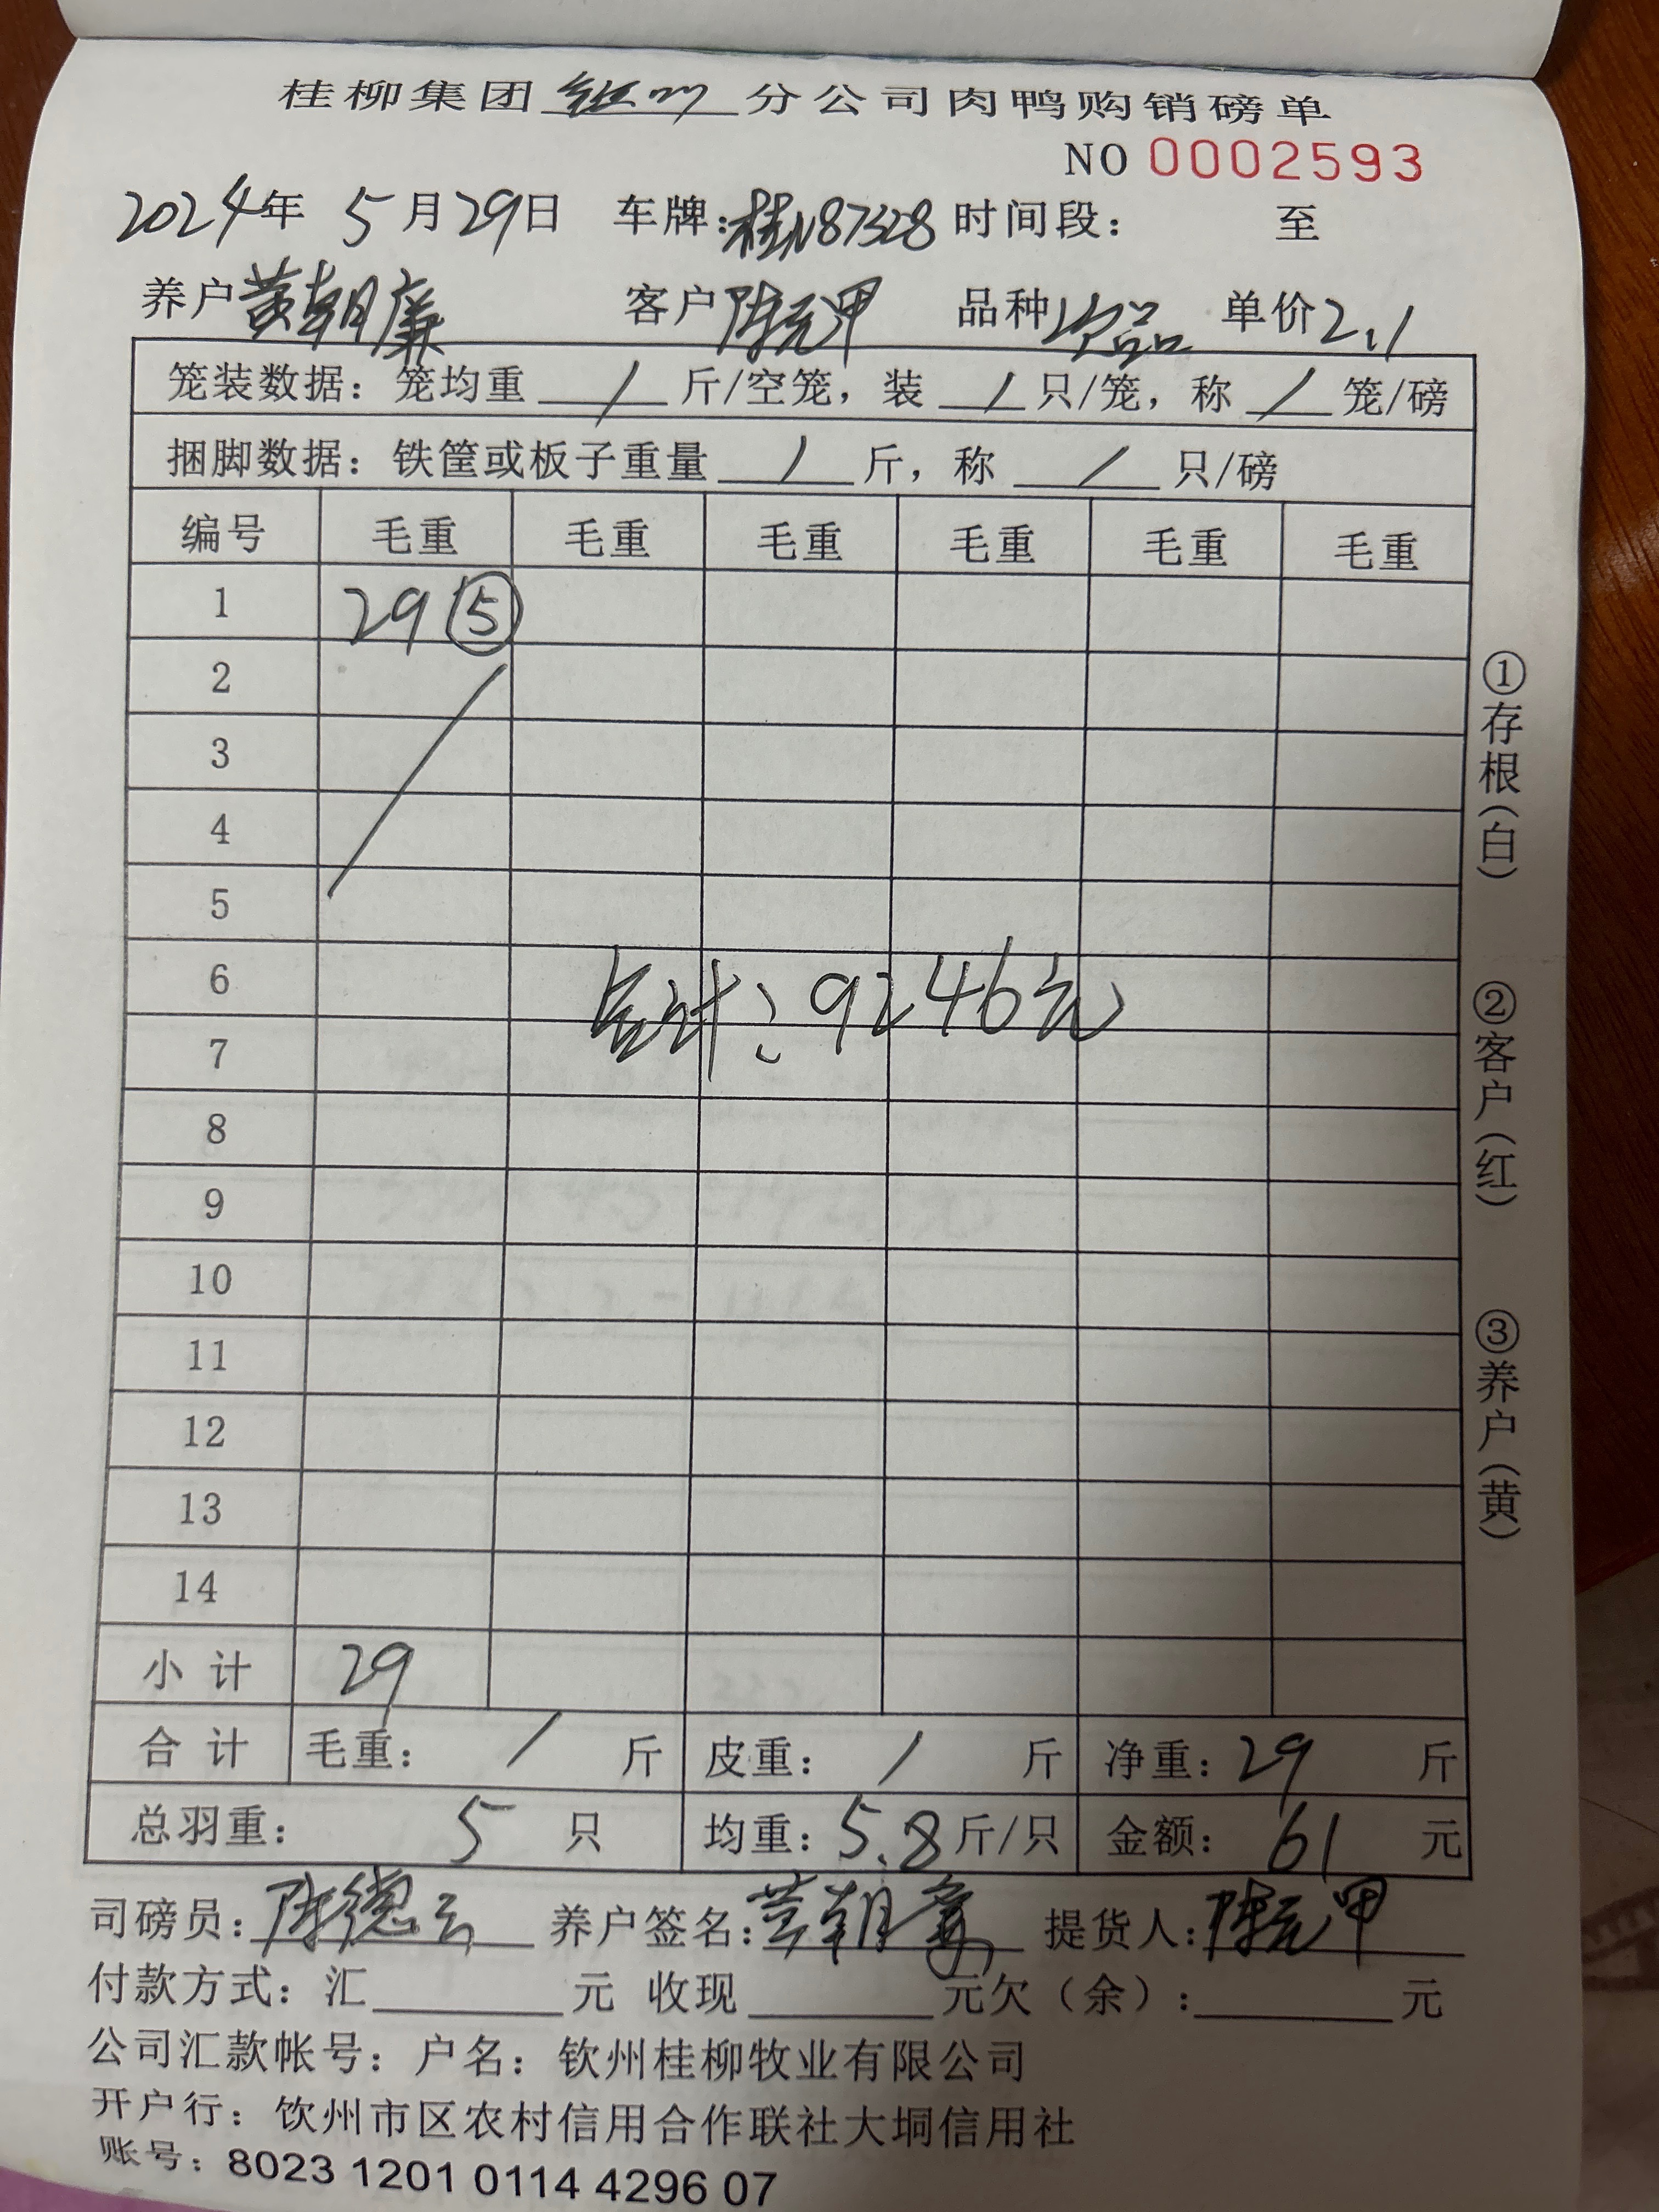 桂柳集团钦州分公司肉鸭购销磅单
NO 0002593
2024年 5月29日 车牌:桂N87328 时间段: 至
养户黄朝廉 客户陈元甲 品种次品 单价2.1
笼装数据: 笼均重 / 斤/空笼, 装 / 只/笼, 称 / 笼/磅
捆脚数据: 铁筐或板子重量 / 斤, 称 / 只/磅
编号 毛重 毛重 毛重 毛重 毛重 毛重
1 29 ⑤
2
3
4
5
6
合计: 9246元
7
8
9
10
11
12
13
14
小计 29
合计 毛重: / 斤 皮重: / 斤 净重: 29 斤
总羽重: 5 只 均重: 5.8 斤/只 金额: 61 元
司磅员: 陈德云 养户签名: 黄朝廉 提货人: 陈元甲
付款方式: 汇 元 收现 元欠(余): 元
公司汇款帐号: 户名: 钦州桂柳牧业有限公司
开户行: 钦州市区农村信用合作联社大垌信用社
账号: 8023 1201 0114 4296 07
①存根(白)
②客户(红)
③养户(黄)